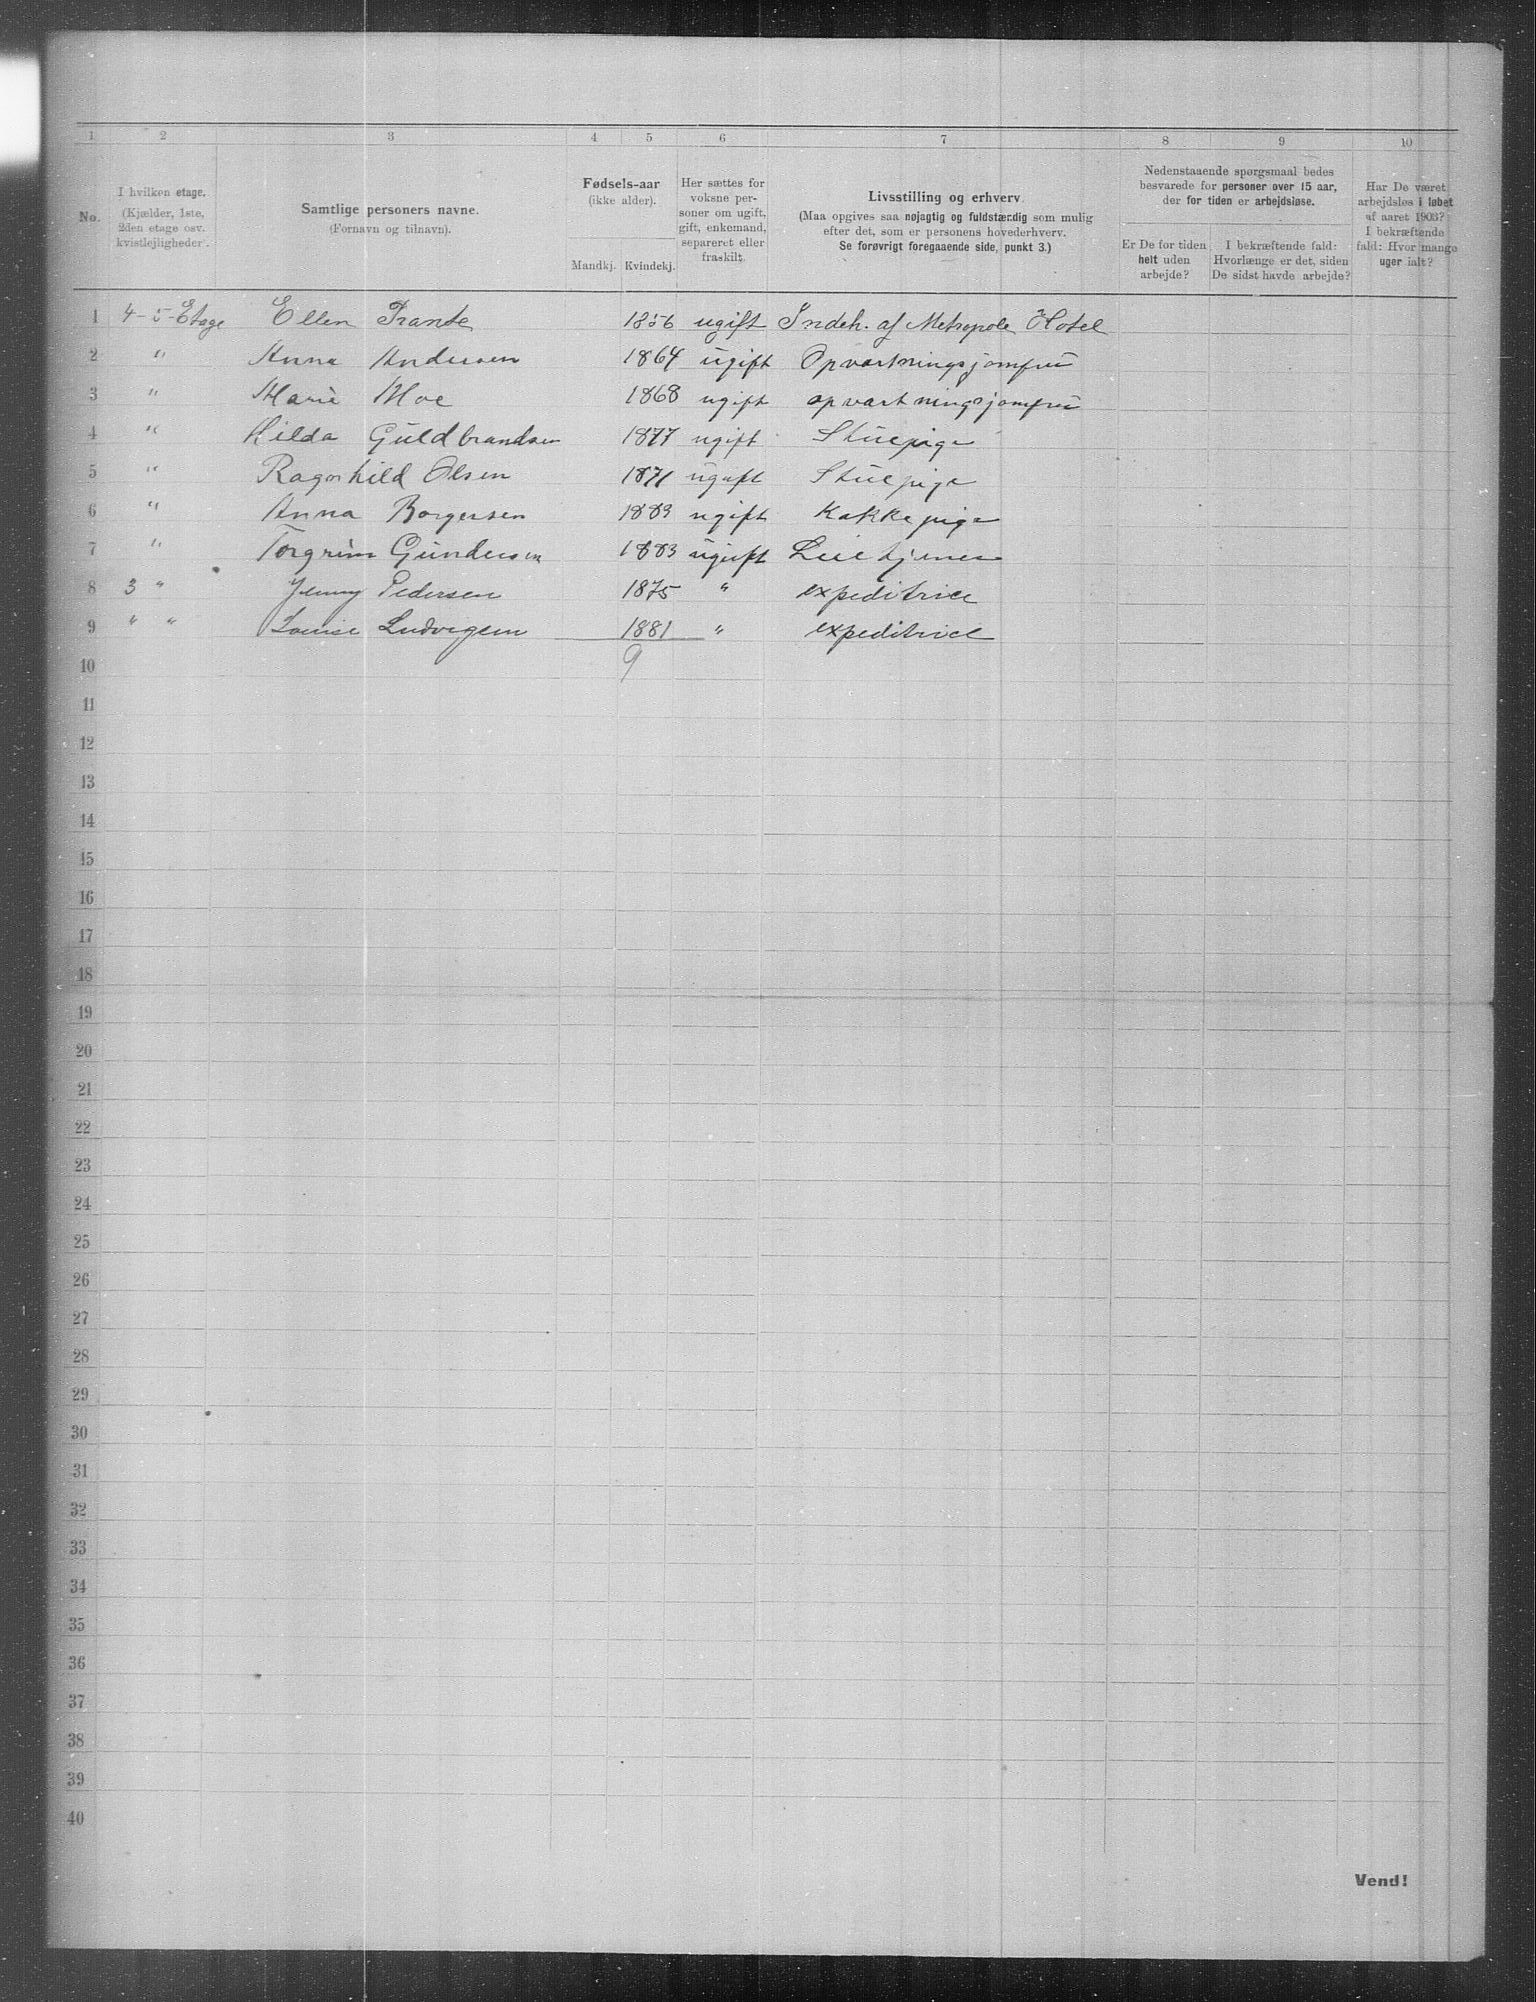 1 2 3 4 5 6 7 8 9 10
No.
I hvilken etage.
(Kjælder, 1ste,
2den etage osv.
kvistlejligheder).
Samtlige personers navne.
(Fornavn og tilnavn).
Fødsels-aar
(ikke alder).
Mandkj. Kvindekj.
Her sættes for
voksne per-
soner om ugift,
gift, enkemand,
separeret eller
fraskilt.
Livsstilling og erhverv.
(Maa opgives saa nøjagtig og fuldstændig som mulig
efter det, som er personens hovederhverv.
Se forøvrigt foregaaende side, punkt 3.)
Nedenstaaende spørgsmaal bedes
besvarede for personer over 15 aar,
der for tiden er arbejdsløse.
Er De for tiden
helt uden
arbejde?
I bekræftende fald:
Hvorlænge er det, siden
De sidst havde arbejde?
Har De været
arbejdsløs i løbet
af aaret 1903?
I bekræftende
fald: Hvor mange
uger ialt?
1 4-5-Etage Ellen 1856 ugift Indeh. af Metropole Hotel
2 " Anna Andersen 1864 ugift Opvartningsjomfru
3 " Marie Moe 1868 ugift opvartningsjomfru
4 " Hilda Guldbrandsen 1877 ugift Stuepige
5 " Ragnhild Olsen 1871 ugift Stuepige
6 " Anna Borgersen 1883 ugift Kokkepige
7 " Torgrim Gundersen 1883 ugift
8 3 " Jenny Pedersen 1875 " expeditrice
9 " " Louise Ludvigsen 1881 " expeditrice
9
10
11
12
13
14
15
16
17
18
19
20
21
22
23
24
25
26
27
28
29
30
31
32
33
34
35
36
37
38
39
40
Vend!